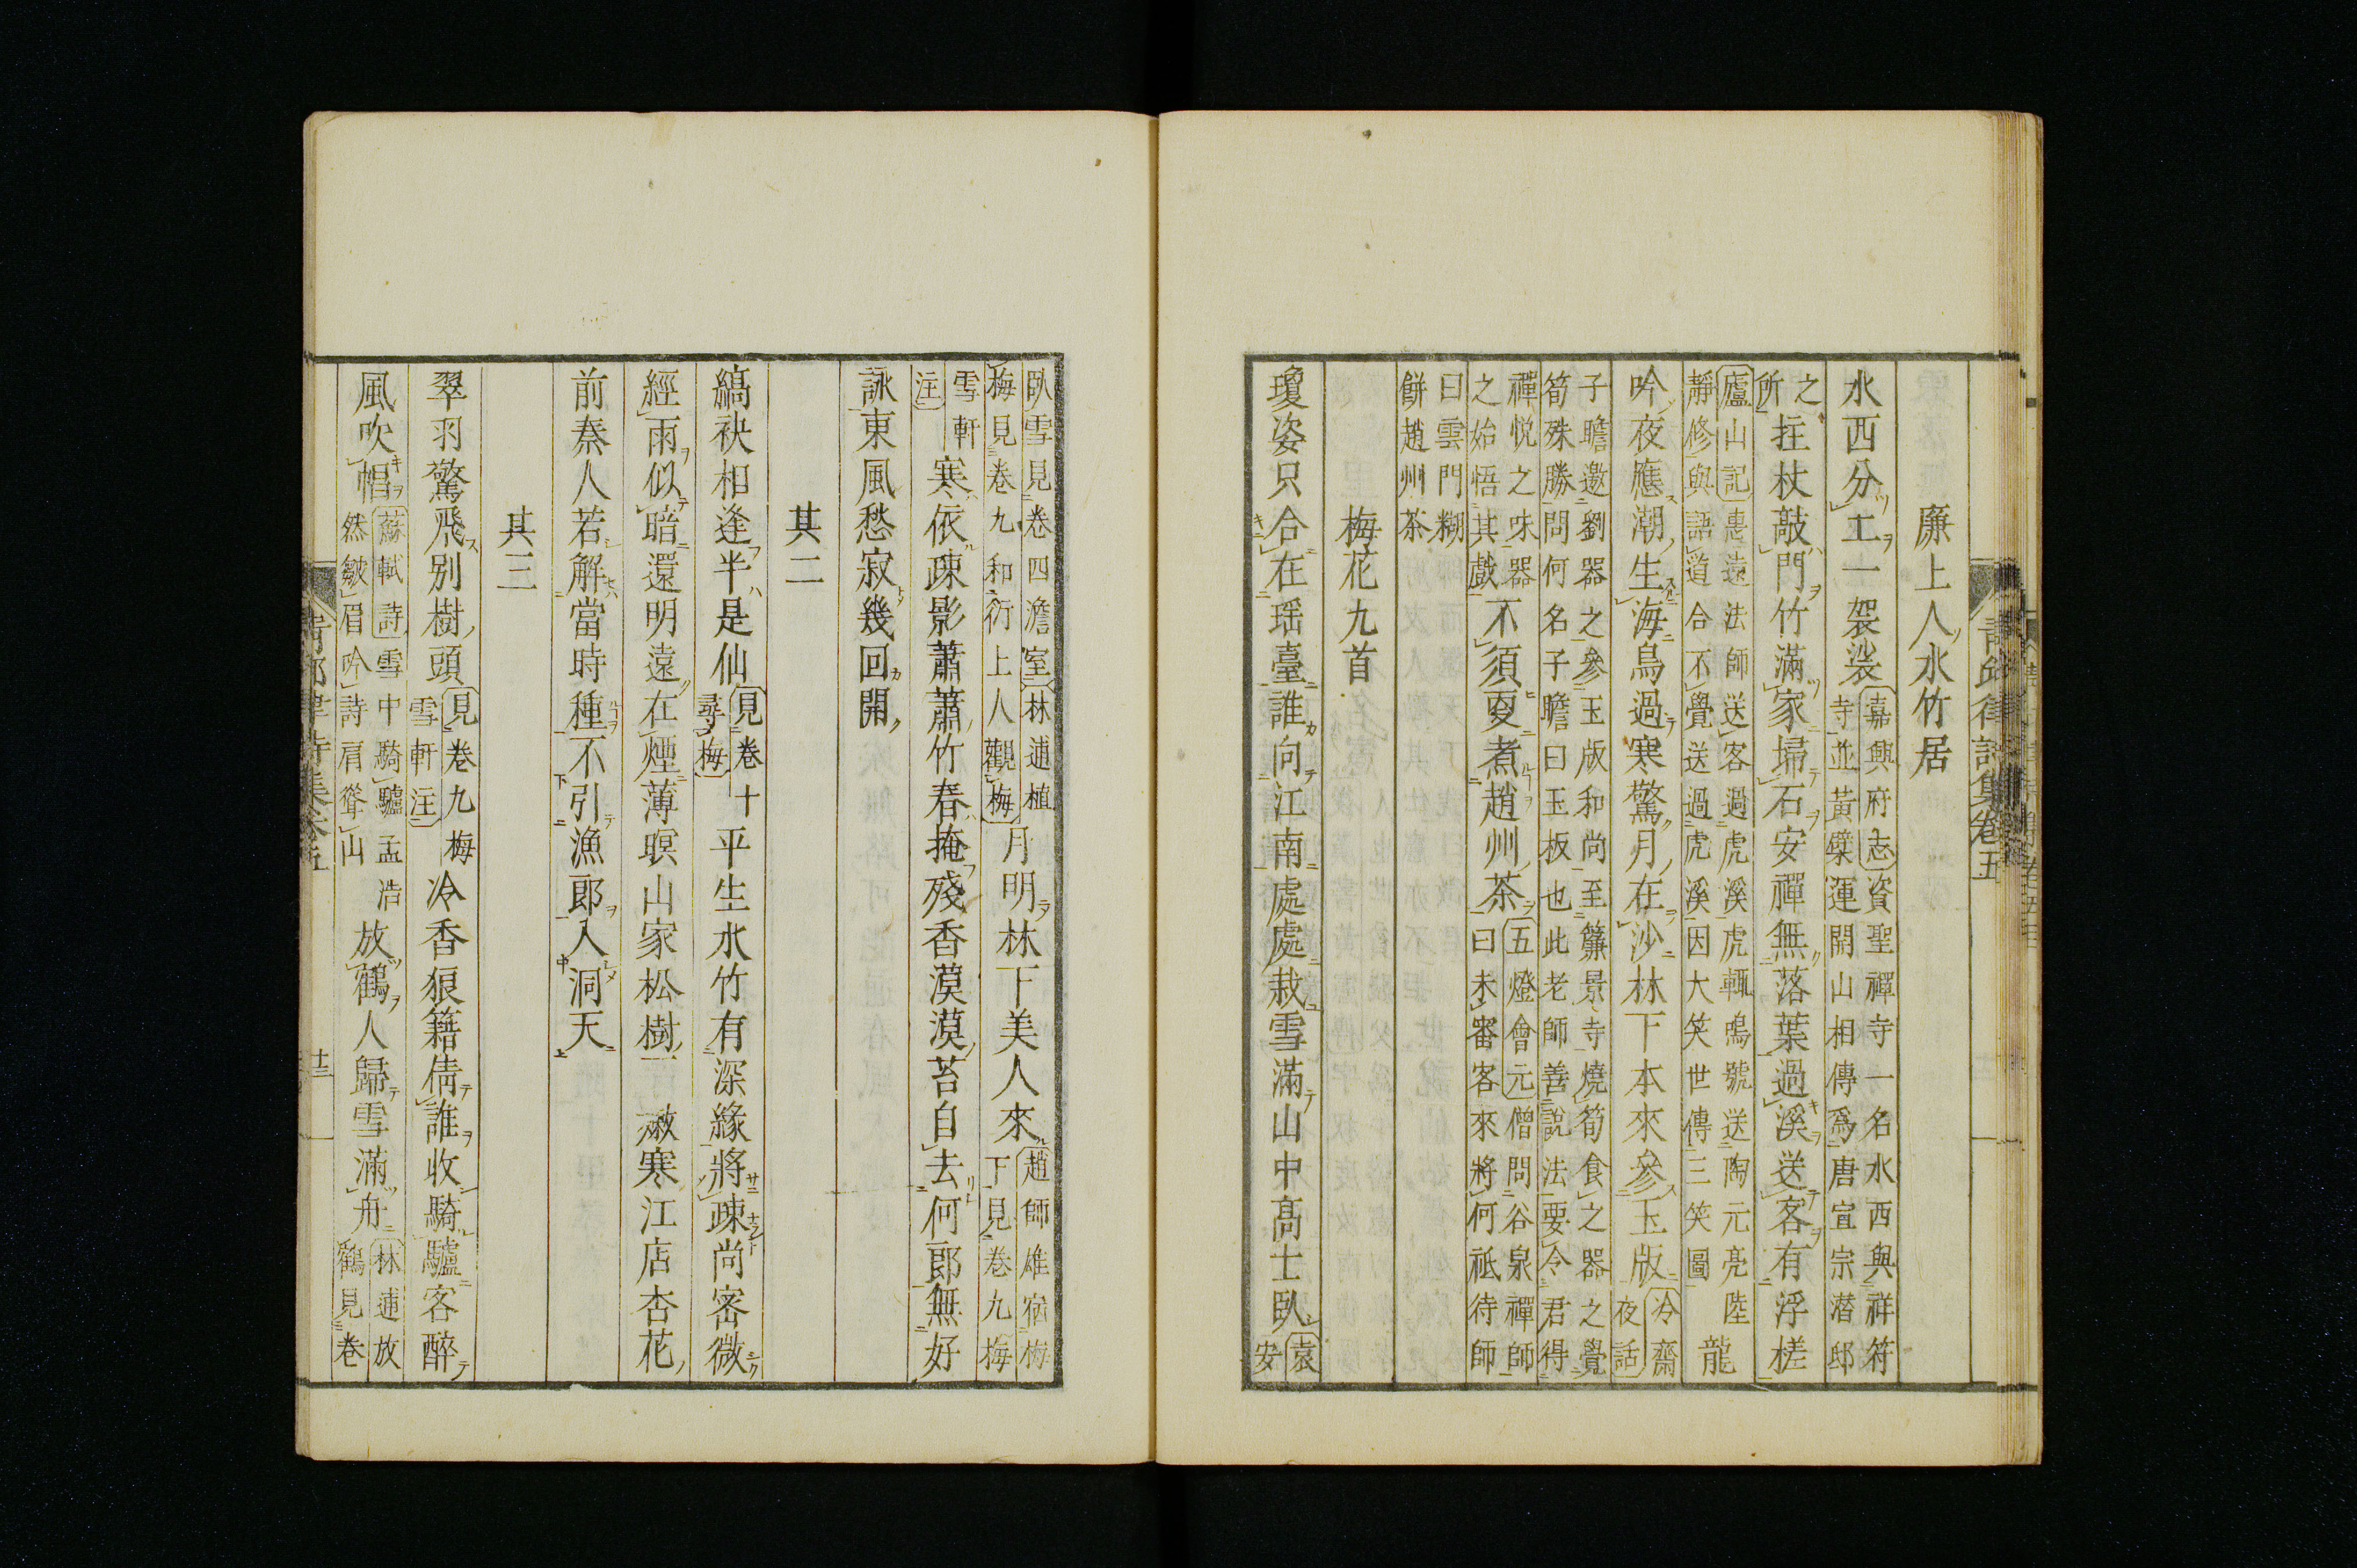 廉上人水竹居
水西分土一袈裟
嘉興府志資聖禪寺一名水西與祥符
寺並黃檗運開山相傳爲唐宣宗潜邸
之
所
拄杖敲門竹滿家掃石安禪無落葉過溪送客有浮槎
廬山記惠遠法師送客過虎溪虎輒鳴號送陶元亮陸
靜修與語道合不覺送過虎溪因大笑世傳三笑圖
龍
吟夜應潮生海鳥過寒驚月在沙林下本來參玉版
冷齋
夜話
子瞻邀劉器之參玉版和尚至簾景寺燒筍食之器之覺
筍殊勝問何名子瞻曰玉板也此老師善說法要令君得
禪悦之味器
之始悟其戲
不須更煮趙州茶
五燈會元僧問谷泉禪師
曰未審客來將何祗待師
曰雲門糊
餅趙州茶
梅花九首
瓊姿只合在瑶臺誰向江南處處栽雪滿山中高士臥
袁
安
臥雪見卷四澹室林逋植
梅見卷九和衍上人觀梅
月明林下美人來
趙師雄宿梅
下見卷九梅
雪軒
注
寒依疎影蕭蕭竹春掩殘香漠漠苔自去何郎無好
詠東風愁寂幾回開
其二
縞袂相逢半是仙
見卷十
尋梅
平生水竹有深緣將疎尚密微
經雨似暗還明遠在煙薄暝山家松樹下嫩寒江店杏花
前秦人若解當時種不引漁郎入洞天
其三
翠羽驚飛別樹頭
見卷九梅
雪軒注
冷香狼籍倩誰收騎驢客醉
風吹帽
蘇軾詩雪中騎驢孟浩
然皺眉吟詩肩聳山
放鶴人歸雪滿舟
林逋放
鶴見卷
青邱律詩集卷五
廿三